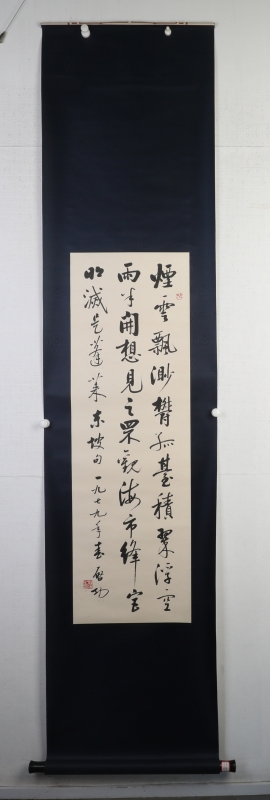 煙雲飄渺鬱孤臺積翠浮空
雨半開想見之罘觀海市絳宮
明滅是蓬萊 东坡句 一九七九年春 启功